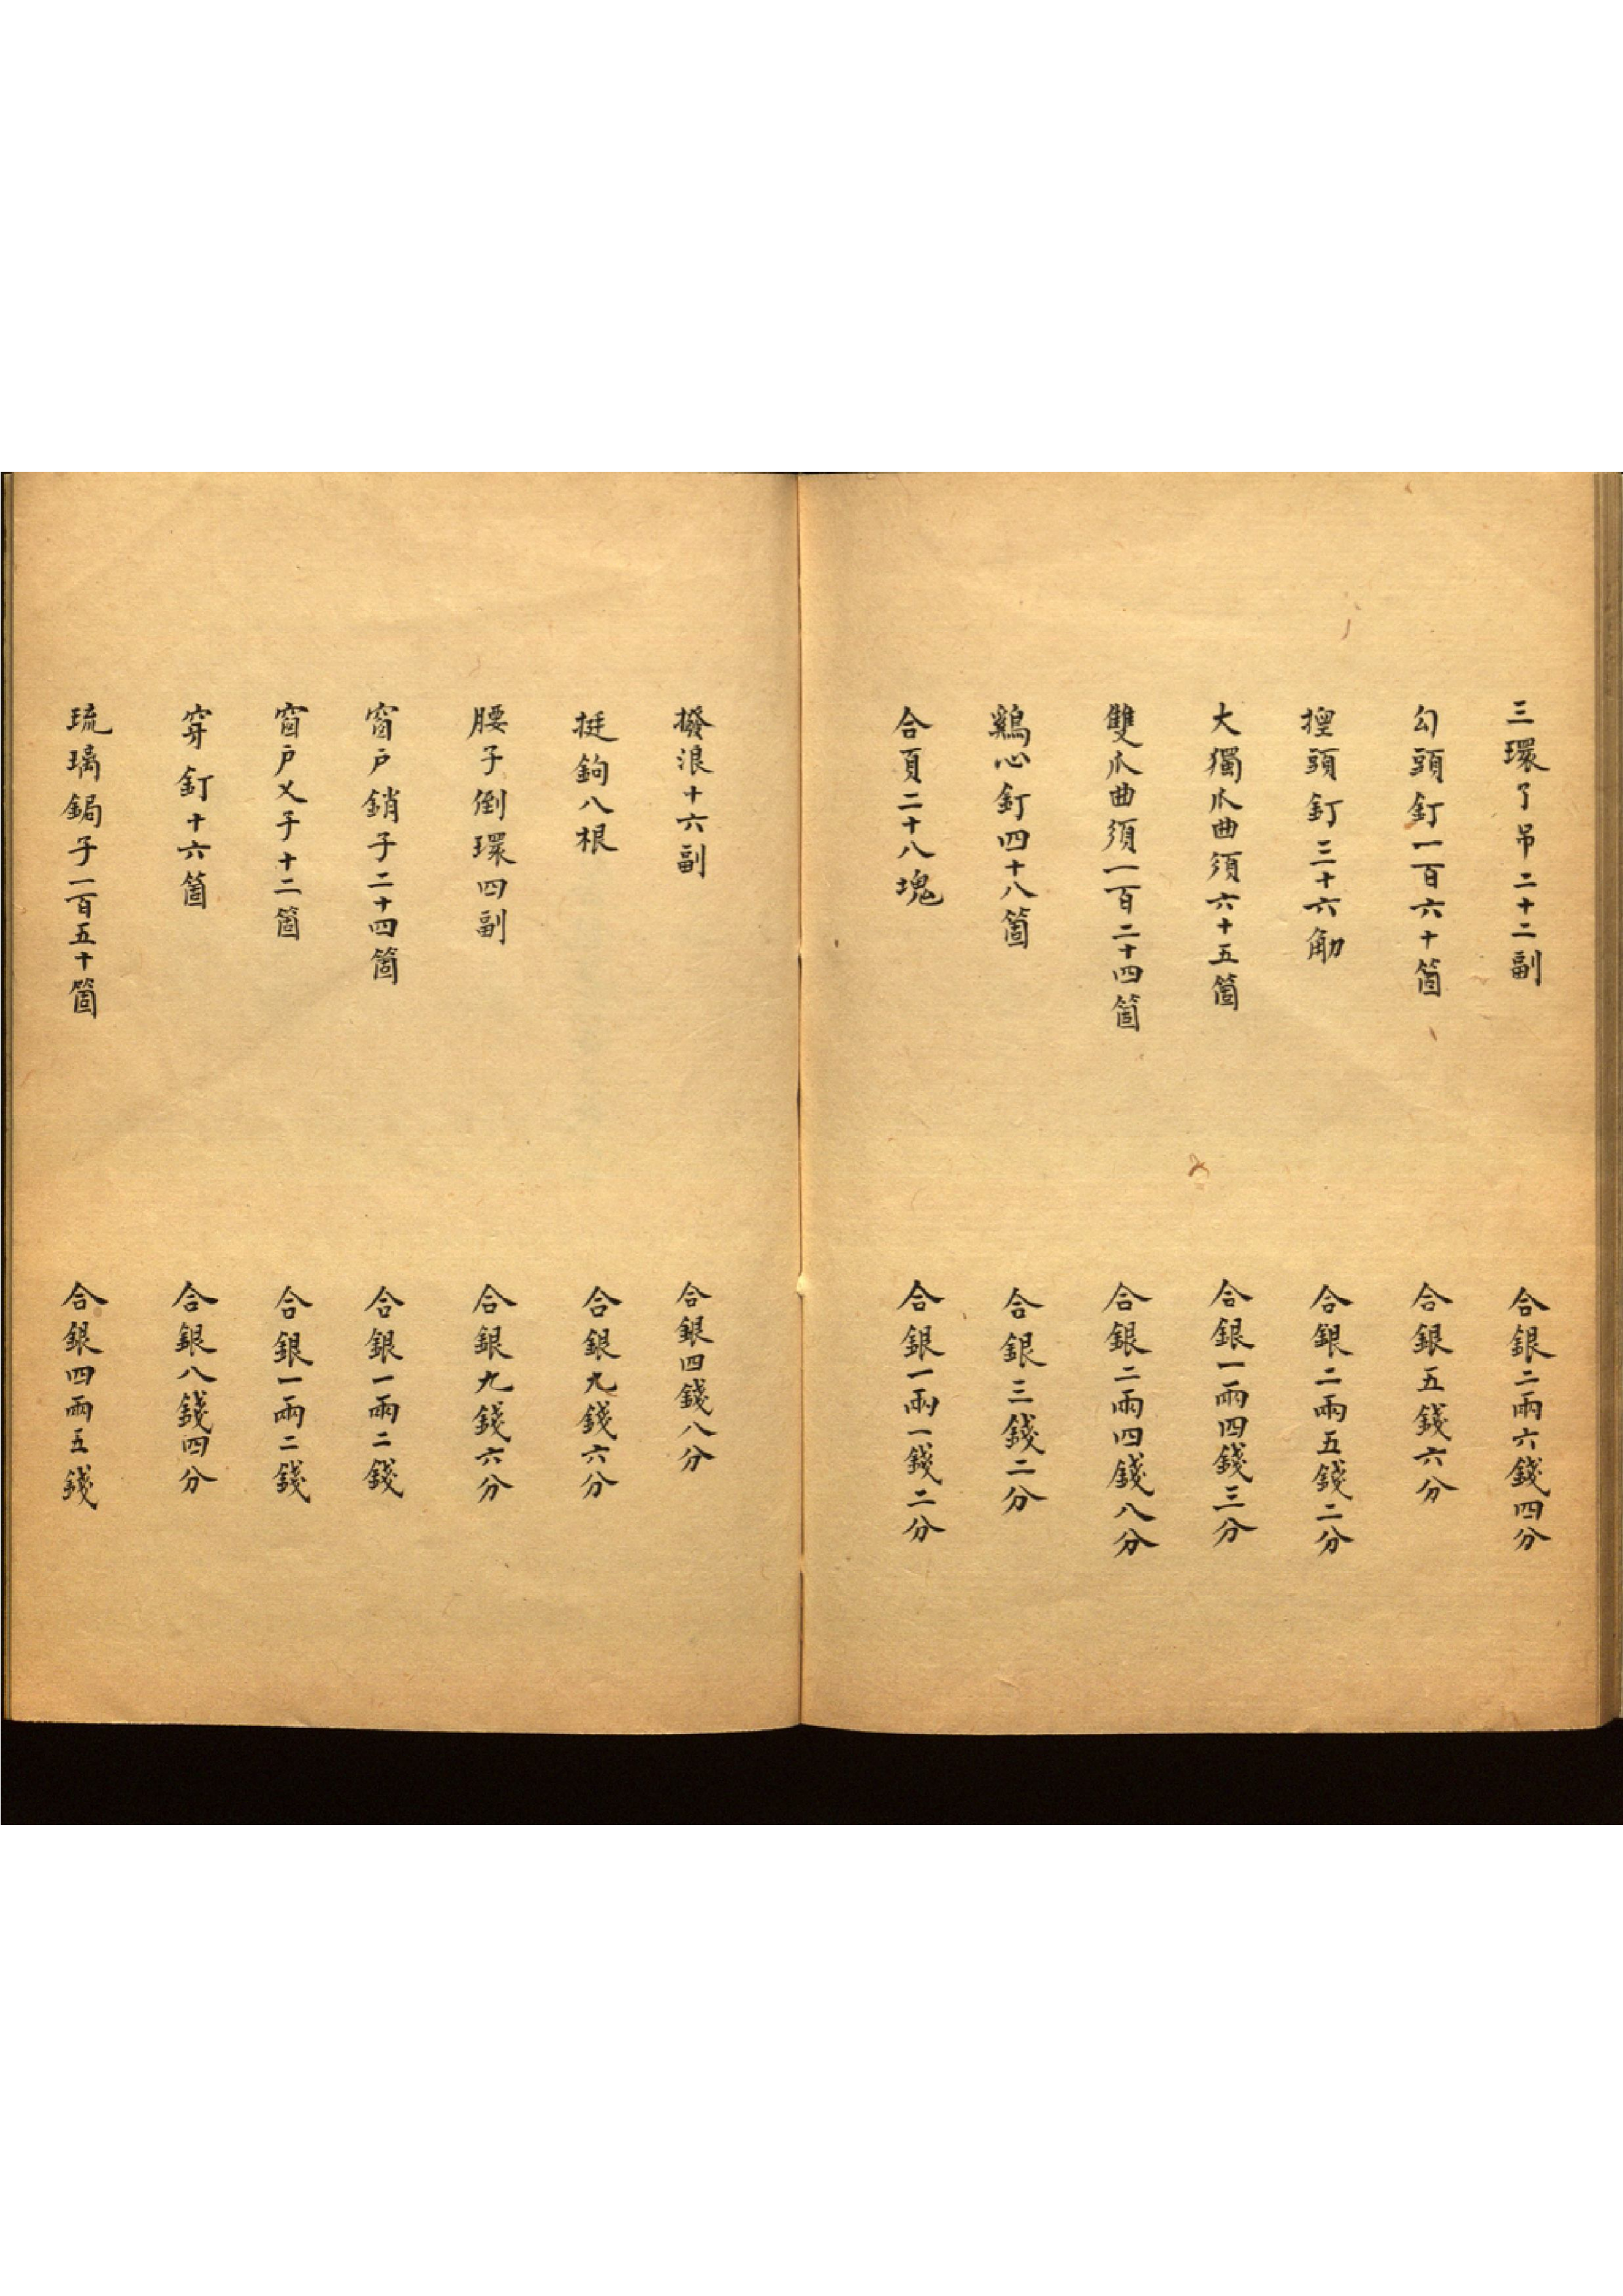 三環了吊二十二副 合銀二兩六錢四分
勾頭釘一百六十箇 合銀五錢六分
頭釘三十六觔 合銀二兩五錢二分
大獨爪曲須六十五箇 合銀一兩四錢三分
雙爪曲須一百二十四箇 合銀二兩四錢八分
鷄心釘四十八箇 合銀三錢二分
合頁二十八塊 合銀一兩一錢二分
撥浪十六副 合銀四錢八分
挺鉤八根 合銀九錢六分
腰子倒環四副 合銀九錢六分
窗户銷子二十四箇 合銀一兩二錢
窗户乂子十二箇 合銀一兩二錢
穿釘十六箇 合銀八錢四分
琉璃鋦子一百五十箇 合銀四兩五錢